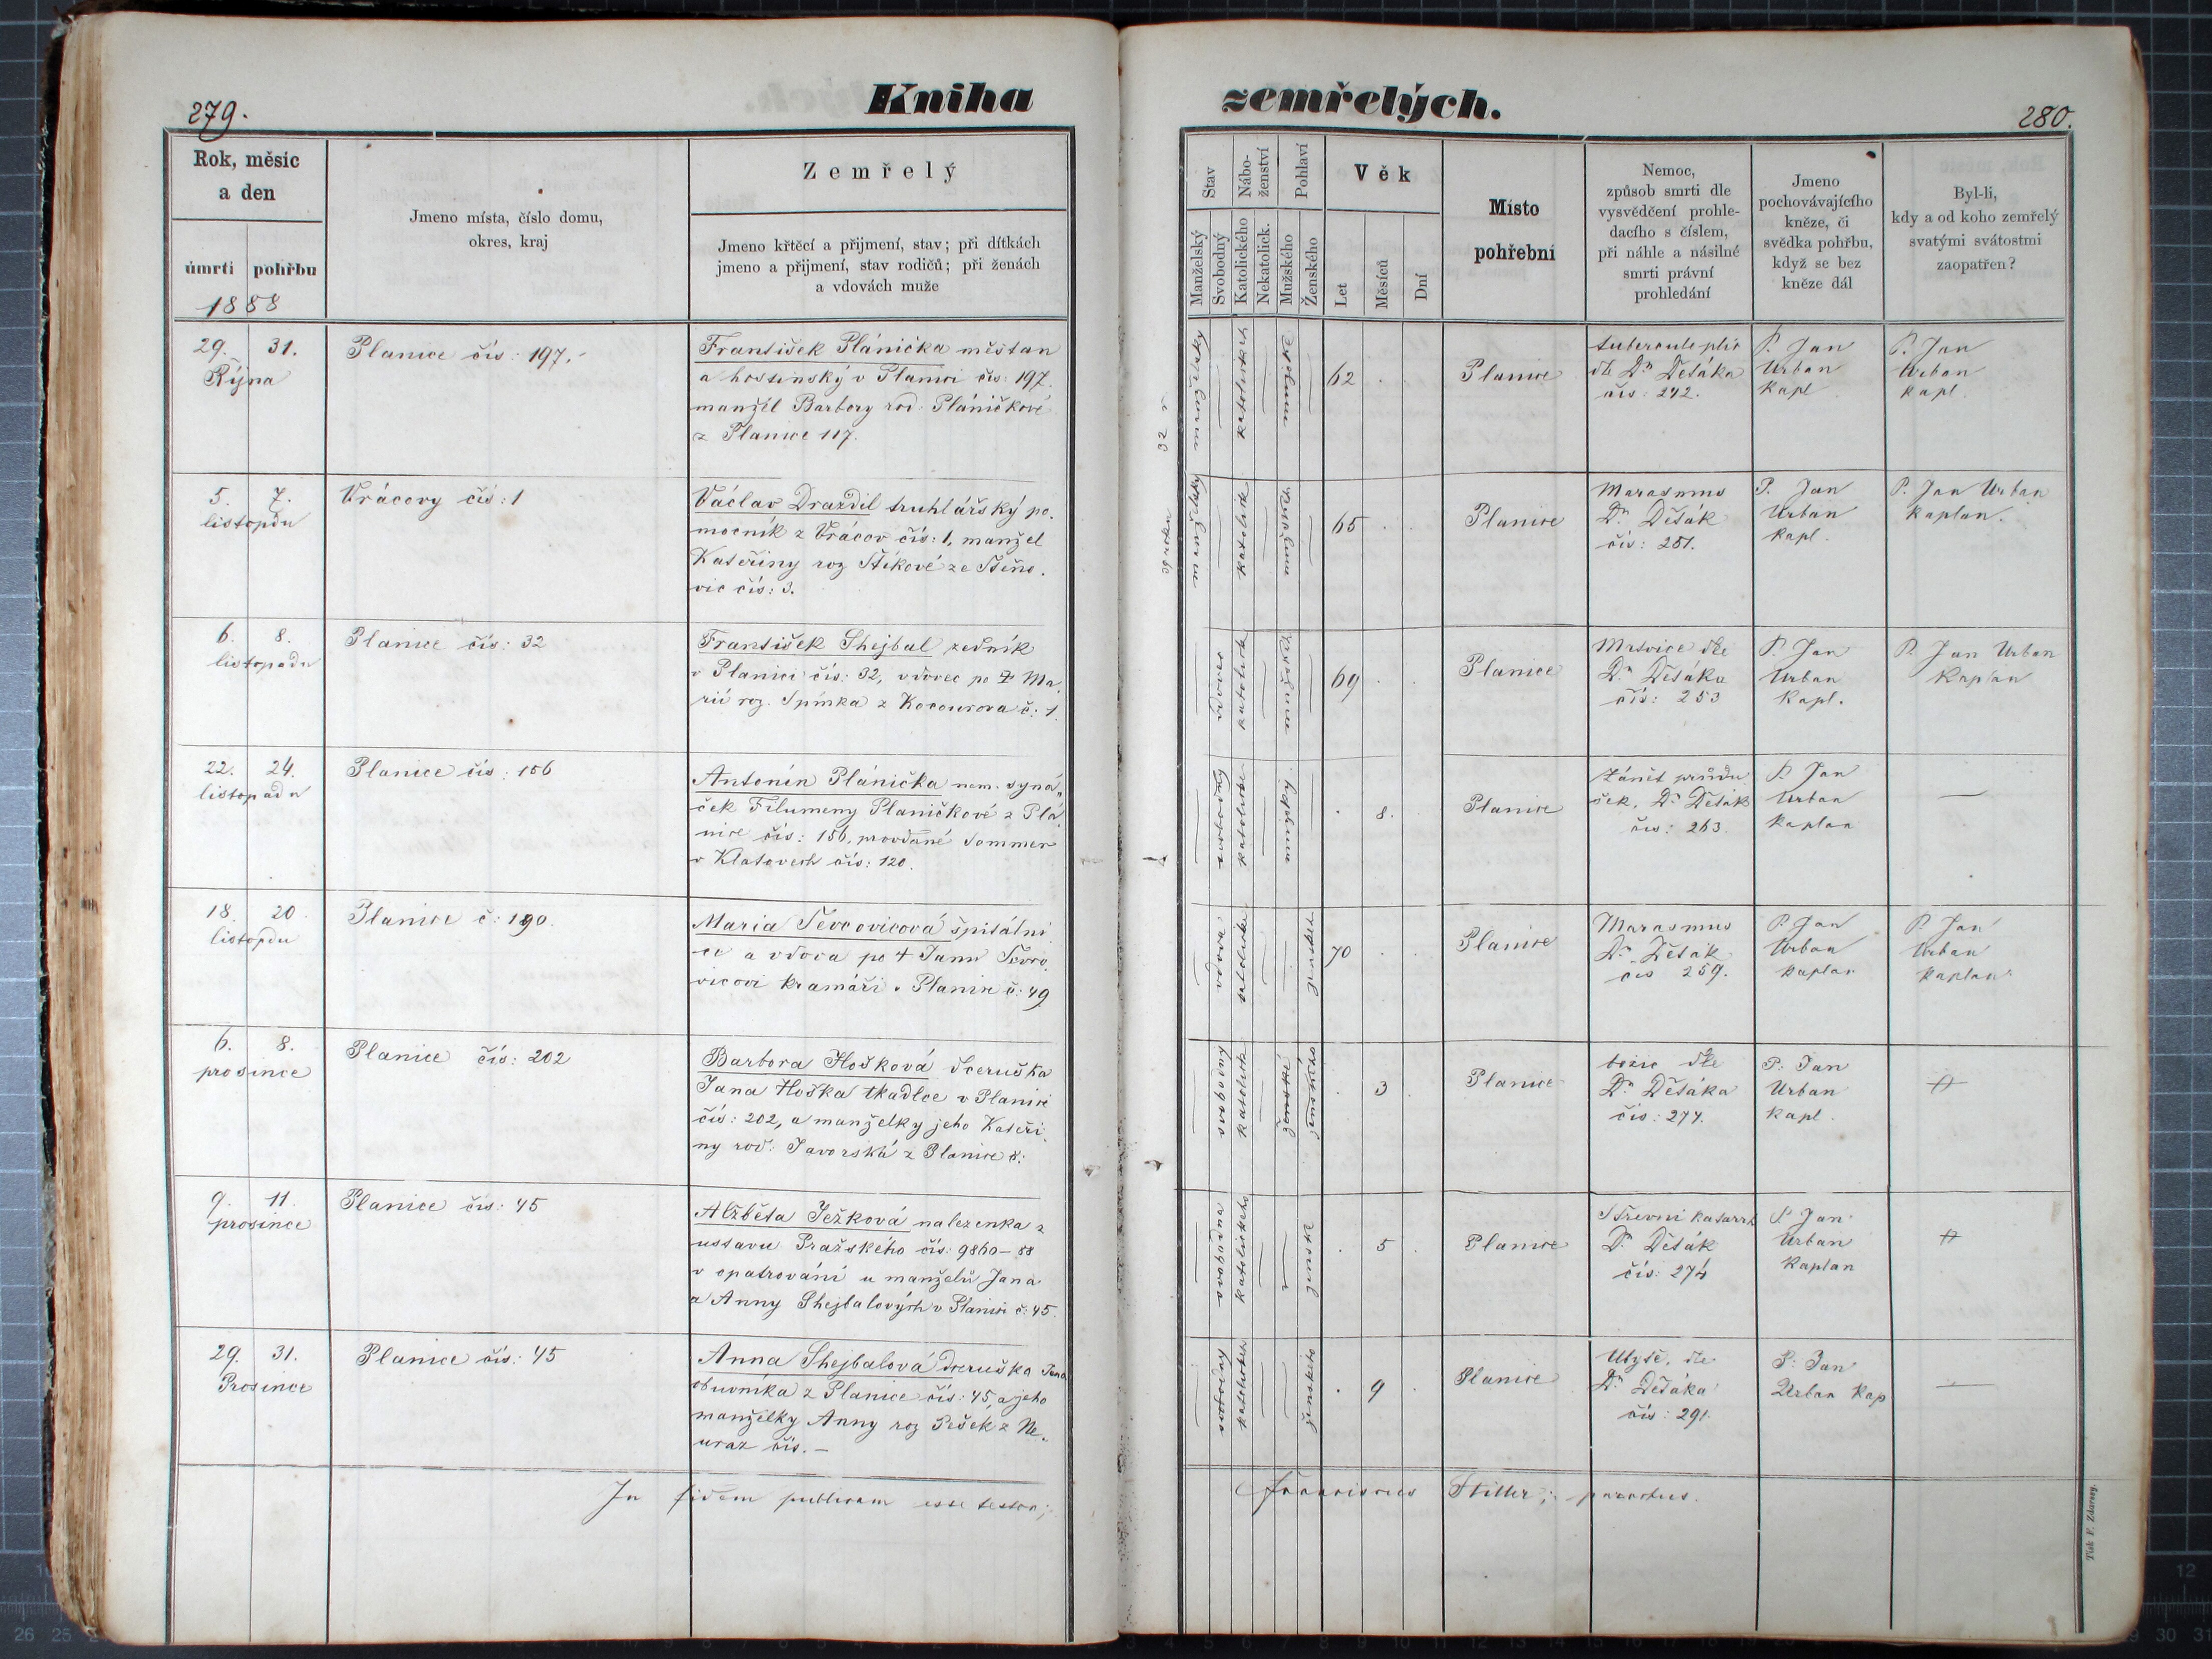 279.
Kniha
Rok, měsíc
a den
Jmeno místa, číslo domu,
okres, kraj
Zemřelý
Jmeno křtěcí a přijmení, stav; při dítkách
jmeno a přijmení, stav rodičů; při ženách
a vdovách muže
úmrtí pohřbu
1888
29. 31.
Října
Planice čís: 197.
František Plánička měštan
a hostinský v Planici čís: 197.
manžel Barbory rod: Pláničkové
z Planice 117.
5. 7.
listopdu
Vrácovy čís: 1
Václav Draždil truhlářský po.
mocník z Vrácov čís: 1, manžel
Kateřiny roz
vic čís: 3.
6. 8.
listopadu
Planice čís: 32
František Shejbal zedník
v Planici čís: 32, vdovec po Ma.
rii roz. Spinka z Kocourova č: 1.
22. 24.
listopadu
Planice čís: 156
Antonín Plánička nem. syná„
ček Filumeny Planičkové z Plá
nice čís: 156, provdané Sommer
v Klatovech čís: 120.
18. 20.
listopdu
Planice č: 190.
Maria Ševcovicová špitální
ce a vdova po † Janu
vicovi kramáři v Planici č: 49
6. 8.
prosince
Planice čís: 202
Barbora Hošková dceruška
Jana Hoška tkadlce v Planici
čís: 202, a manželky jeho Kateři.
ny rod: Javorská z Planice č:
9. 11.
prosince
Planice čís: 45
Alžběta Ježková nalezenka z
ustavu Pražského čís: 9860-88
v opatrování u manželů Jana
a Anny Shejbalových v Planici č: 45.
29. 31.
Prosince
Planice čís: 45
Anna Shejbalová dceruška Jana
obuvníka z Planice čís: 45, a jeho
manželky Anny roz Pešek z Ne„
uraz čís. —
In fidem publicam esse testor;
zemřelých.
280.
Stav
Nábo-
ženství
Pohlaví
Věk
Manželský
Svobodný
Katolického
Nekatolick.
Mužského
Ženského
Let
Měsíců
Dní
Místo
pohřební
Nemoc,
způsob smrti dle
vysvědčení prohle-
dacího s číslem,
při náhle a násilné
smrti právní
prohledání
Jmeno
pochovávajícího
kněze, či
svědka pohřbu,
když se bez
kněze dál
Byl-li,
kdy a od koho zemřelý
svatými svátostmi
zaopatřen?
manželský
62
Planice
dle Dr Dešáka
čís: 242.
P. Jan
Urban
kapl
P. Jan
Urban
kapl.
32 r
39 roku
manželský
katolík
65
Planice
Marasmus
Dr. Dešák
čís: 251.
P. Jan
Urban
kapl.
P. Jan Urban
kaplan.
vdovec
katolík
69
Planice
Mrtvice dle
Dr. Dešáka
čís: 253
P. Jan
Urban
kapl.
P. Jan Urban
Kaplan
svobodný
8.
Planice
Zánět průdu
šek, Dr Dešák
čís: 263.
P. Jan
Urban
kaplan
—
vdova
70
Planice
Marasmus
Dr. Dešák
čís 259.
P. Jan
Urban
kaplan
P. Jan
Urban
kaplan
svobodný
katolík
3
Planice
dle
Dr Dešáka
čís: 277.
P. Jan
Urban
kapl.
svobodna
katolického
ženské
5
Planice
Střevní katarrh
Dr. Dešák
čís: 274
P. Jan
Urban
Kaplan
svobodný
ženského
9
Planice
Ubytě, dle
Dr Dešáka
čís: 291.
P: Jan
Urban kap
—
Franciscus Stiller; parochus.
Tisk F. Zdarssy.